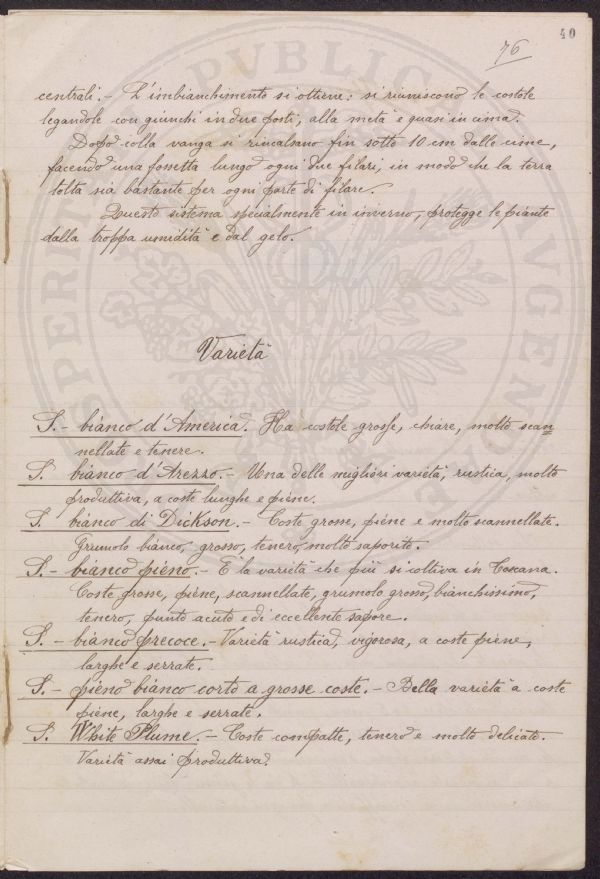 40
76
centrali. - L'imbianchimento si ottiene: si riuniscono le costole
legandole con giunchi in due posti, alla metà e quasi in cima.
Dopo colla vanga si rincalsano fin sotto 10 cm dalle cime,
facendo una fossetta lungo ogni due filari, in modo che la terra
tolta sia bastante per ogni parte di filare.
Questo sistema specialmente in inverno, protegge le piante
dalla troppa umidità e dal gelo.
Varietà
S. - bianco d'America. Ha costole grosse, chiare, molto scan=
nellate e tenere.
S. bianco d'Arezzo. - Una delle migliori varietà, rustica, molto
produttiva, a coste lunghe e piene.
S. bianco di Dickson. - Coste grosse, piene e molto scannellate.
Grumolo bianco, grosso, tenero, molto saporito.
S. - bianco pieno. - È la varietà che più si coltiva in Toscana.
Coste grosse, piene, scannellate, grumolo grosso, bianchissimo,
tenero, punto acuto e di eccellente sapore.
S. - bianco precoce. - Varietà rustica, vigorosa, a coste piene,
larghe e serrate.
S. - pieno bianco corto a grosse coste. - Bella varietà a coste
piene, larghe e serrate.
S. White Plume. - Coste compatte, tenere e molto delicate.
Varietà assai produttiva.
PVBLICA
SPERITA
AVGENDAE